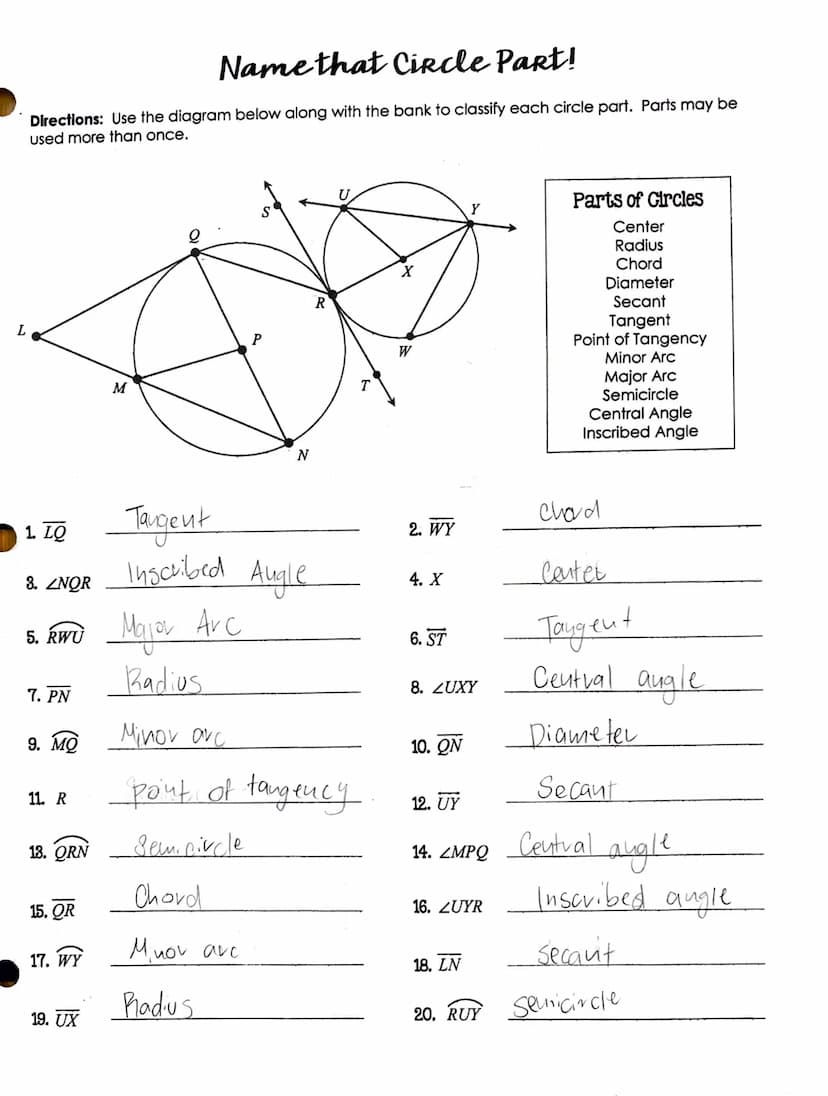 Name that Circle Part!
Directions: Use the diagram below along with the bank to classify each circle part. Parts may be
used more than once.
Parts of Circles
Center
Radius
Chord
Diameter
Secant
Tangent
Point of Tangency
Minor Arc
Major Arc
Semicircle
Central Angle
Inscribed Angle
S
U
Y
Q
X
R
L
P
W
M
T
N
1. LQ Tangent
2. WY Chord
3. ∠NQR Inscribed Angle
4. X Center
5. RWU Major Arc
6. ST Tangent
7. PN Radius
8. ∠UXY Central angle
9. MQ Minor arc
10. QN Diameter
11. R point of tangency
12. UY Secant
13. QRN Semicircle
14. ∠MPQ Central angle
15. QR Chord
16. ∠UYR Inscribed angle
17. WY Minor arc
18. LN secant
19. UX Radius
20. RUY semicircle